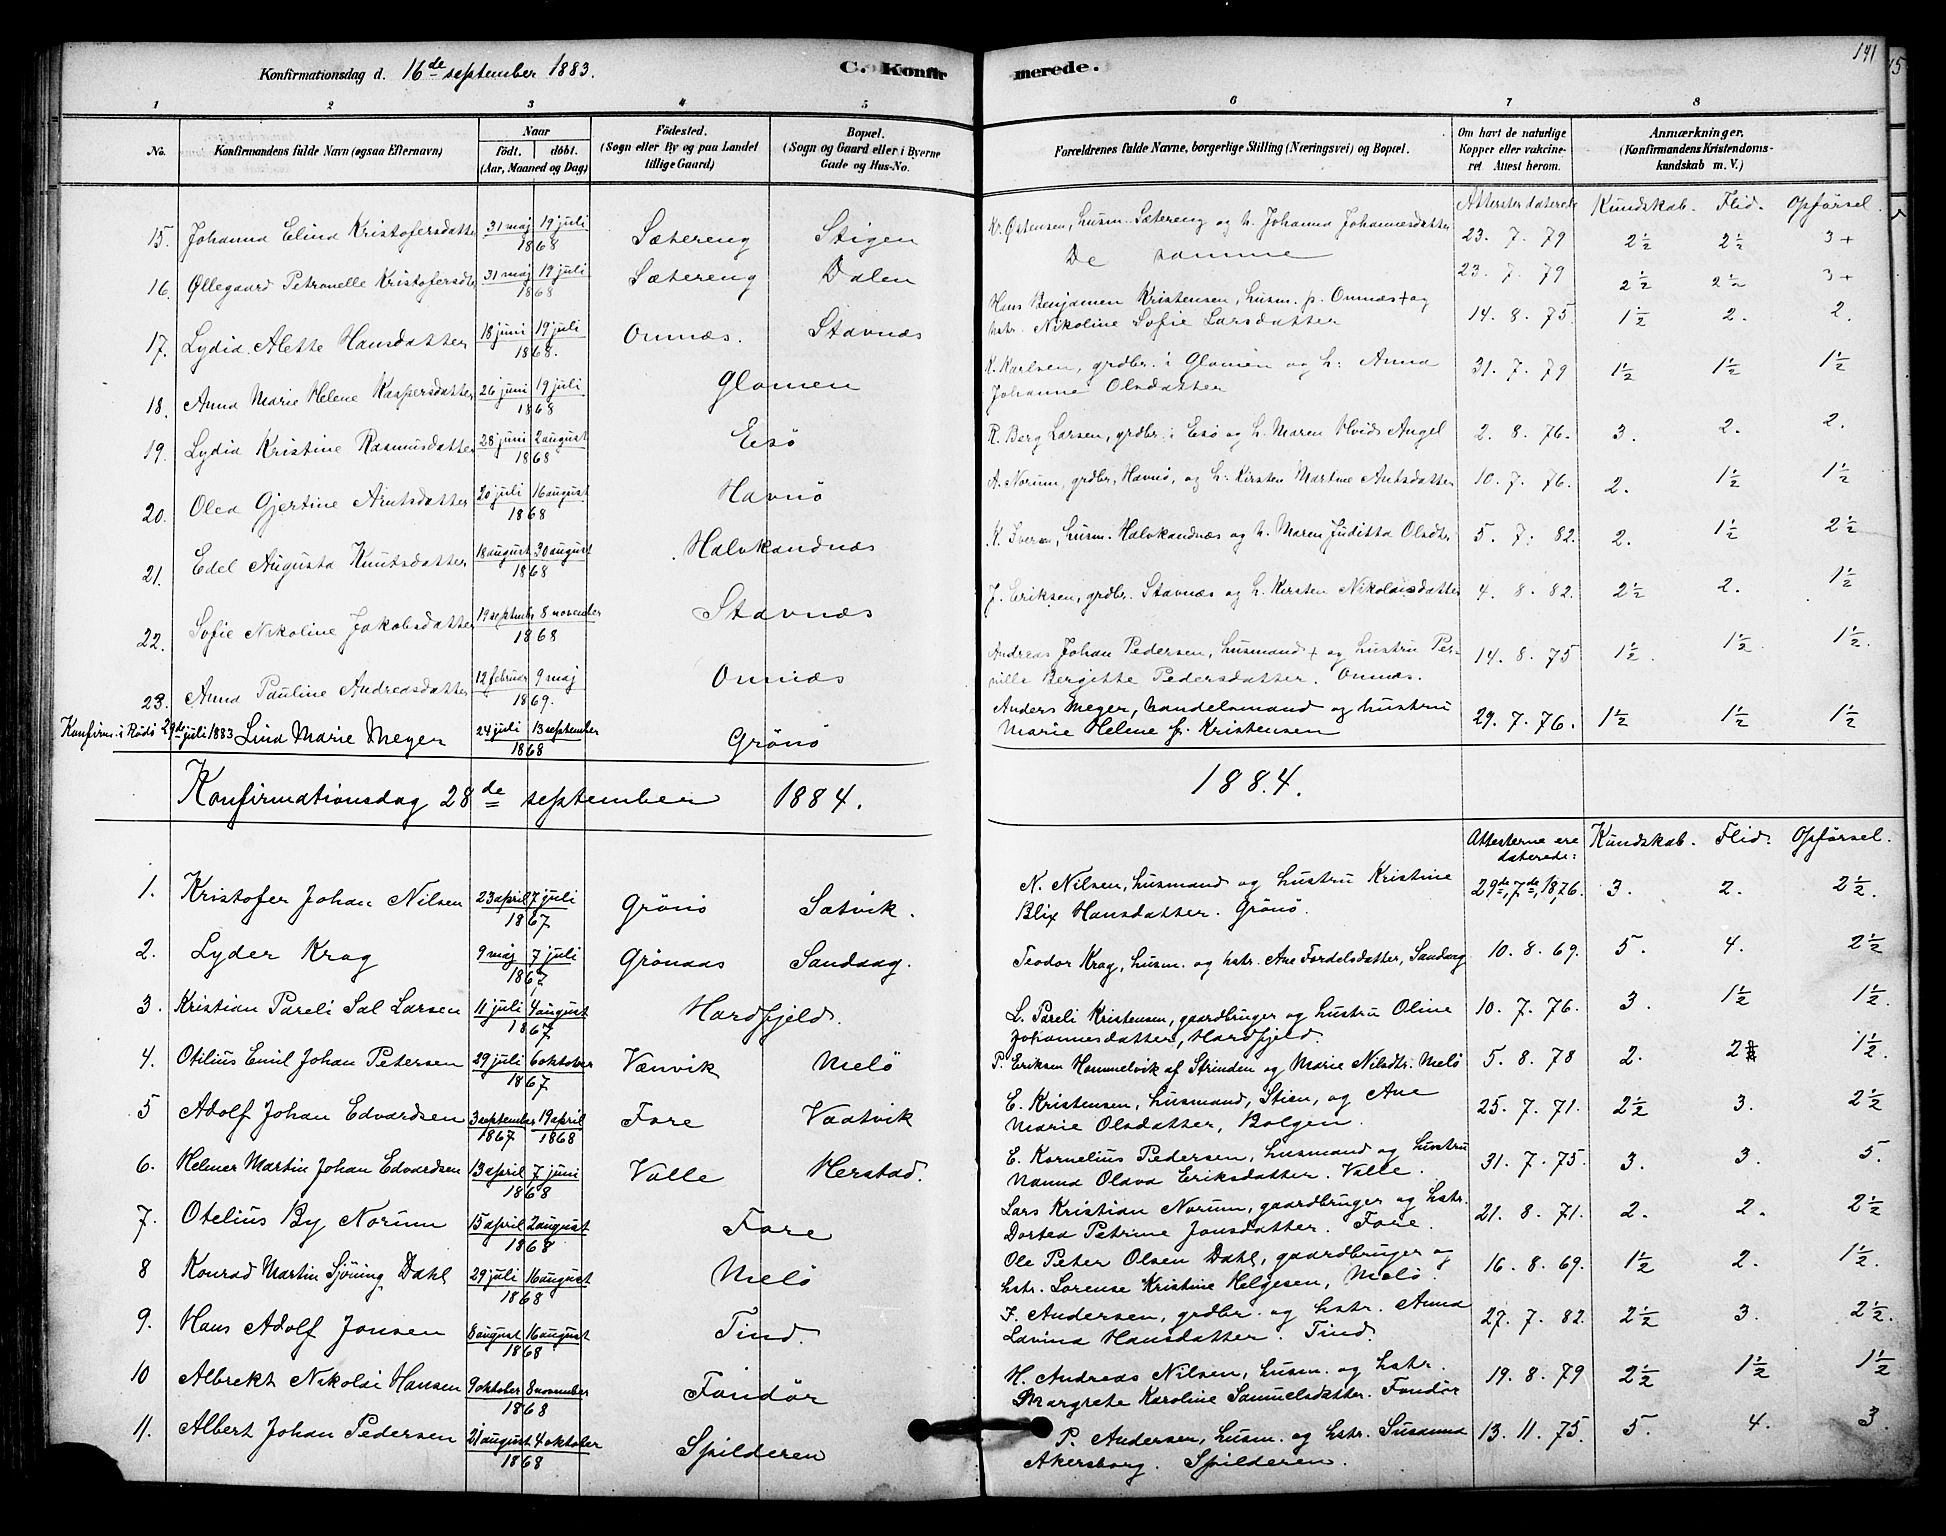 141
Konfirmationsdag d. 16de september 1883. C. Konfirmerede.
1 2 3 4 5 6 7 8
No. Konfirmandens fulde Navn (ogsaa Efternavn) Naar født. døbt. (Aar, Maaned og Dag) Fødested. (Sogn eller By og paa Landet tillige Gaard) Bopæl. (Sogn og Gaard eller i Byerne Gade og Hus-No. Forældrenes fulde Navne, borgerlige Stilling (Næringsvei) og Bopæl. Om havt de naturlige Kopper eller vakcineret. Attest herom. Anmærkninger. (Konfirmandens Kristendomskundskab m. V.)
Attester daterede Kundskab. Flid. Opførsel.
15. Johanna Elina Kristofersdatter 31 maj 19 juli 1868 Sætereng Stigen Kr. Østensen, husm. Sætereng og h. Johanna Johannesdatter 23. 7. 79 2½ 2½ 3+
16. Øllegaard Petronelle Kristofersdtr 31 maj 19 juli 1868 Sætereng Dalen De samme 23. 7. 79 2½ 2½ 3+
17. Lydia Alette Hansdatter 18 juni 19 juli 1868. Onnæs. Stavnæs Hans Benjamen Kristensen, husm. p. Onnæs + og
hstr. Nikoline Sofie Larsdatter 14. 8. 75 1½ 2. 2.
18. Anna Marie Helene Kaspersdatter 26 juni 19 juli 1868 Glomen K. Karlsen, grdbr. i Glomen og h. Anna
Johanne Olsdatter 31. 7. 79 1½ 1½ 1½
19. Lydia Kristine Rasmusdatter 28 juni 2 august 1868 Esø R. Berg Larsen, grdbr. i Esø og h. Maren Hvids Angel 2. 8. 76. 3. 2. 2.
20. Olea Gjertine Arntsdatter 20 juli 16 august 1868 Havnø A. Norum, grdbr. Havnø, og h. Kirsten Martine Antsdatter 10. 7. 76. 2. 1½ 1½
21. Edel Augusta Knutsdatter 18 august 30 august 1868 Halvkandnæs K. Iversen, husm. Halvkandnæs og h. Maren Juditta Olsdtr 5. 7. 82. 2. 1½ 2½
22. Sofie Nikoline Jakobsdatter 19 september 8 november 1868 Stavnæs J. Eriksen, grdbr. Stavnæs og h. Kirsten Nikolaisdatter 4. 8. 82. 2½ 2. 1½
23. Anna Pauline Andreasdatter 12 februar 9 maj 1869. Onnæs Andreas Johan Pedersen, husmand + og hustru Per-
nille Bergitte Pedersdatter. Onnæs. 14. 8. 75 1½. 1½. 1½.
Konfirm. i Rødø 29de juli 1883 Lina Marie Meyer 24 juli 13 september 1868 Grønø Anders Meyer, handelsmand og hustru
Marie Helene f. Kristensen 29. 7. 76. 1½ 1½ 1½
Konfirmationsdag 28de september 1884. 1884.
Attesterne ere daterede: Kundskab. Flid. Opførsel.
1. Kristofer Johan Nilsen 23 april 7 juli 1867 Grønø Satvik. N. Nilsen, husmand og hustru Kristine
Blix Hansdatter. Grønø. 29de, 7de, 1876. 3. 2. 2½.
2. Lyder Krag 9 maj 7 juli 1867. Grønaas Sandaag. Teodor Krag, husm. og hstr. Ane Fordelsdatter, Sandaag 10. 8. 69. 5. 4. 2½
3. Kristian Pareli Sal Larsen 11 juli 4 august 1867 Hardfjeld. L. Pareli Kristensen, gaardbruger og hustru Oline
Johannesdatter, Hardfjeld. 10. 7. 76. 3. 1½ 1½.
4. Otilius Emil Johan Petersen 29 juli 6 oktober 1867 Vænvik Melø P. Eriksen Hommelvik af Strinden og Marie Nilsdtr. Melø 5. 8. 78 2. 2 1½.
5 Adolf Johan Edvardsen 3 september 1867 19 april 1868 Fore Vaatvik E. Kristensen, husmand, Stien, og Ane
Marie Olsdatter, Bolgen. 25. 7. 71. 2½ 3. 2½
6. Helmer Martin Johan Edvardsen 13 april 7 juni 1868 Valle Herstad. E. Kornelius Pedersen, husmand og hustru
Nanna Olava Eriksdatter. Valle. 31. 7. 75. 3. 3. 5.
7. Otelius By Norum 15 april 2 august 1868 Fore Lars Kristian Norum, gaardbruger og hstr.
Dortea Petrine Jonsdatter. Fore. 21. 8. 71. 2. 2. 2½
8 Konrad Martin Sjøning Dahl 29 juli 16 august 1868 Melø Ole Peter Olsen Dahl, gaardbruger og
hstr. Lorense Kristine Helgesen, Melø. 16. 8. 69. 1½ 2. 1½.
9. Hans Adolf Jonsen 8 august 16 august 1868 Tind. J. Andersen, grdbr. og hstr. Anna
Lavina Hansdatter. Tind. 27. 7. 82. 2½ 3. 2½.
10 Albrekt Nikolai Hansen 9 oktober 8 november 1868 Fondør H. Andreas Nilsen, husm. og hstr.
Margrete Karoline Samuelsdatter. Fondør 19. 8. 79 2½ 1½ 1½
11. Albert Johan Pedersen 21 august 4 oktober 1868 Spilderen P. Andersen, husm. og hstr. Susanna
Akersborg. Spilderen. 13. 11. 75. 5. 4. 3.